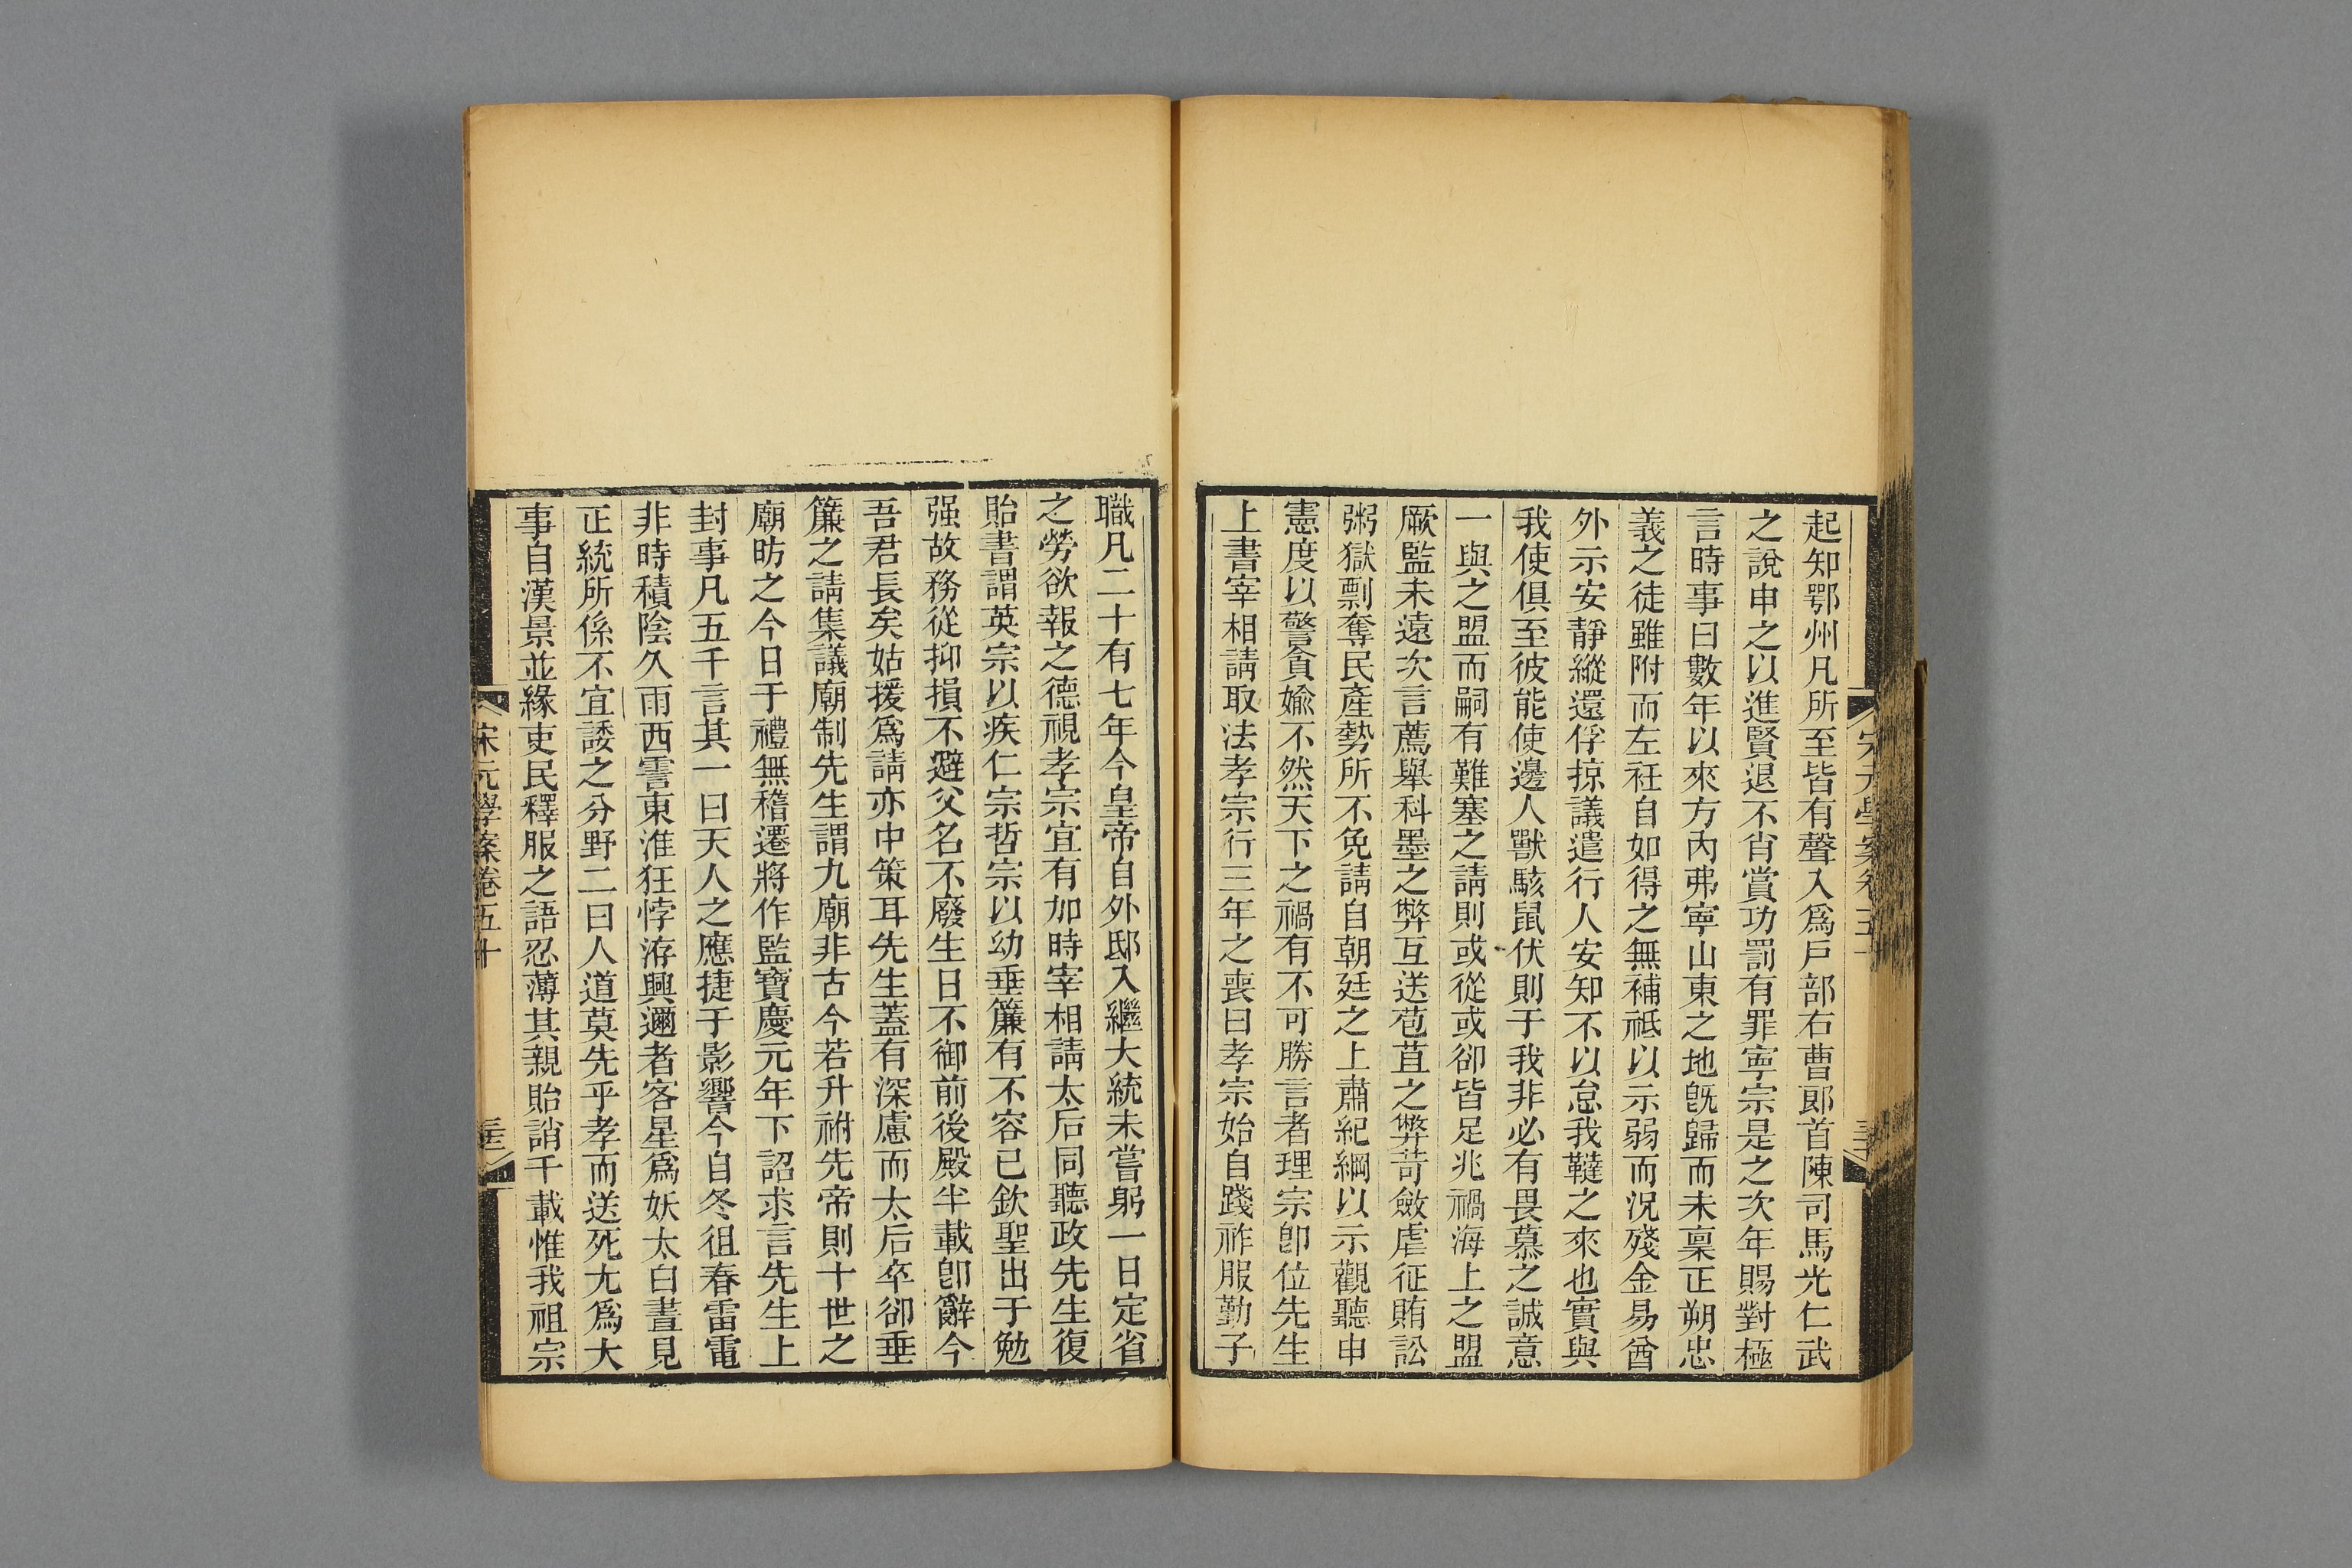 起知鄂州凡所至皆有聲入爲戶部右曹郎首陳司馬光仁武
之說申之以進賢退不肖賞功罰有罪寧宗是之次年賜對極
言時事曰數年以來方內弗寧山東之地旣歸而未稟正朔忠
義之徒雖附而左衽自如得之無補祗以示弱而況殘金易酋
外示安靜縱還俘掠議遣行人安知不以怠我韃之來也實與
我使俱至彼能使邊人獸駭鼠伏則于我非必有畏慕之誠意
一與之盟而嗣有難塞之請則或從或卻皆足兆禍海上之盟
厥監未遠次言薦舉科墨之弊互送苞苴之弊苛斂虐征賄訟
粥獄剽奪民產勢所不免請自朝廷之上肅紀綱以示觀聽申
憲度以警貪婾不然天下之禍有不可勝言者理宗卽位先生
上書宰相請取法孝宗行三年之喪曰孝宗始自踐祚服勤子
職凡二十有七年今皇帝自外邸入繼大統未嘗躬一日定省
之勞欲報之德視孝宗宜有加時宰相請太后同聽政先生復
貽書謂英宗以疾仁宗哲宗以幼垂簾有不容已欽聖出于勉
强故務從抑損不避父名不廢生日不御前後殿半載卽辭今
吾君長矣姑援爲請亦中策耳先生蓋有深慮而太后卒卻垂
簾之請集議廟制先生謂九廟非古今若升祔先帝則十世之
廟昉之今日于禮無稽遷將作監寶慶元年下詔求言先生上
封事凡五千言其一曰天人之應捷于影響今自冬徂春雷電
非時積陰久雨西霅東淮狂悖洊興邇者客星爲妖太白晝見
正統所係不宜諉之分野二曰人道莫先乎孝而送死尤爲大
事自漢景並緣吏民釋服之語忍薄其親貽誚千載惟我祖宗
宋元學案卷五十